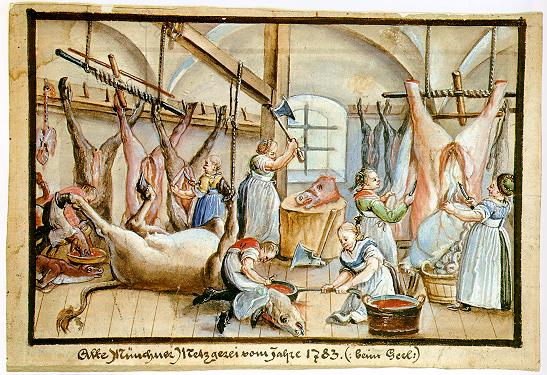 Alte Münchner Metzgerei vom Jahre 1783. (: beim Gerl :)